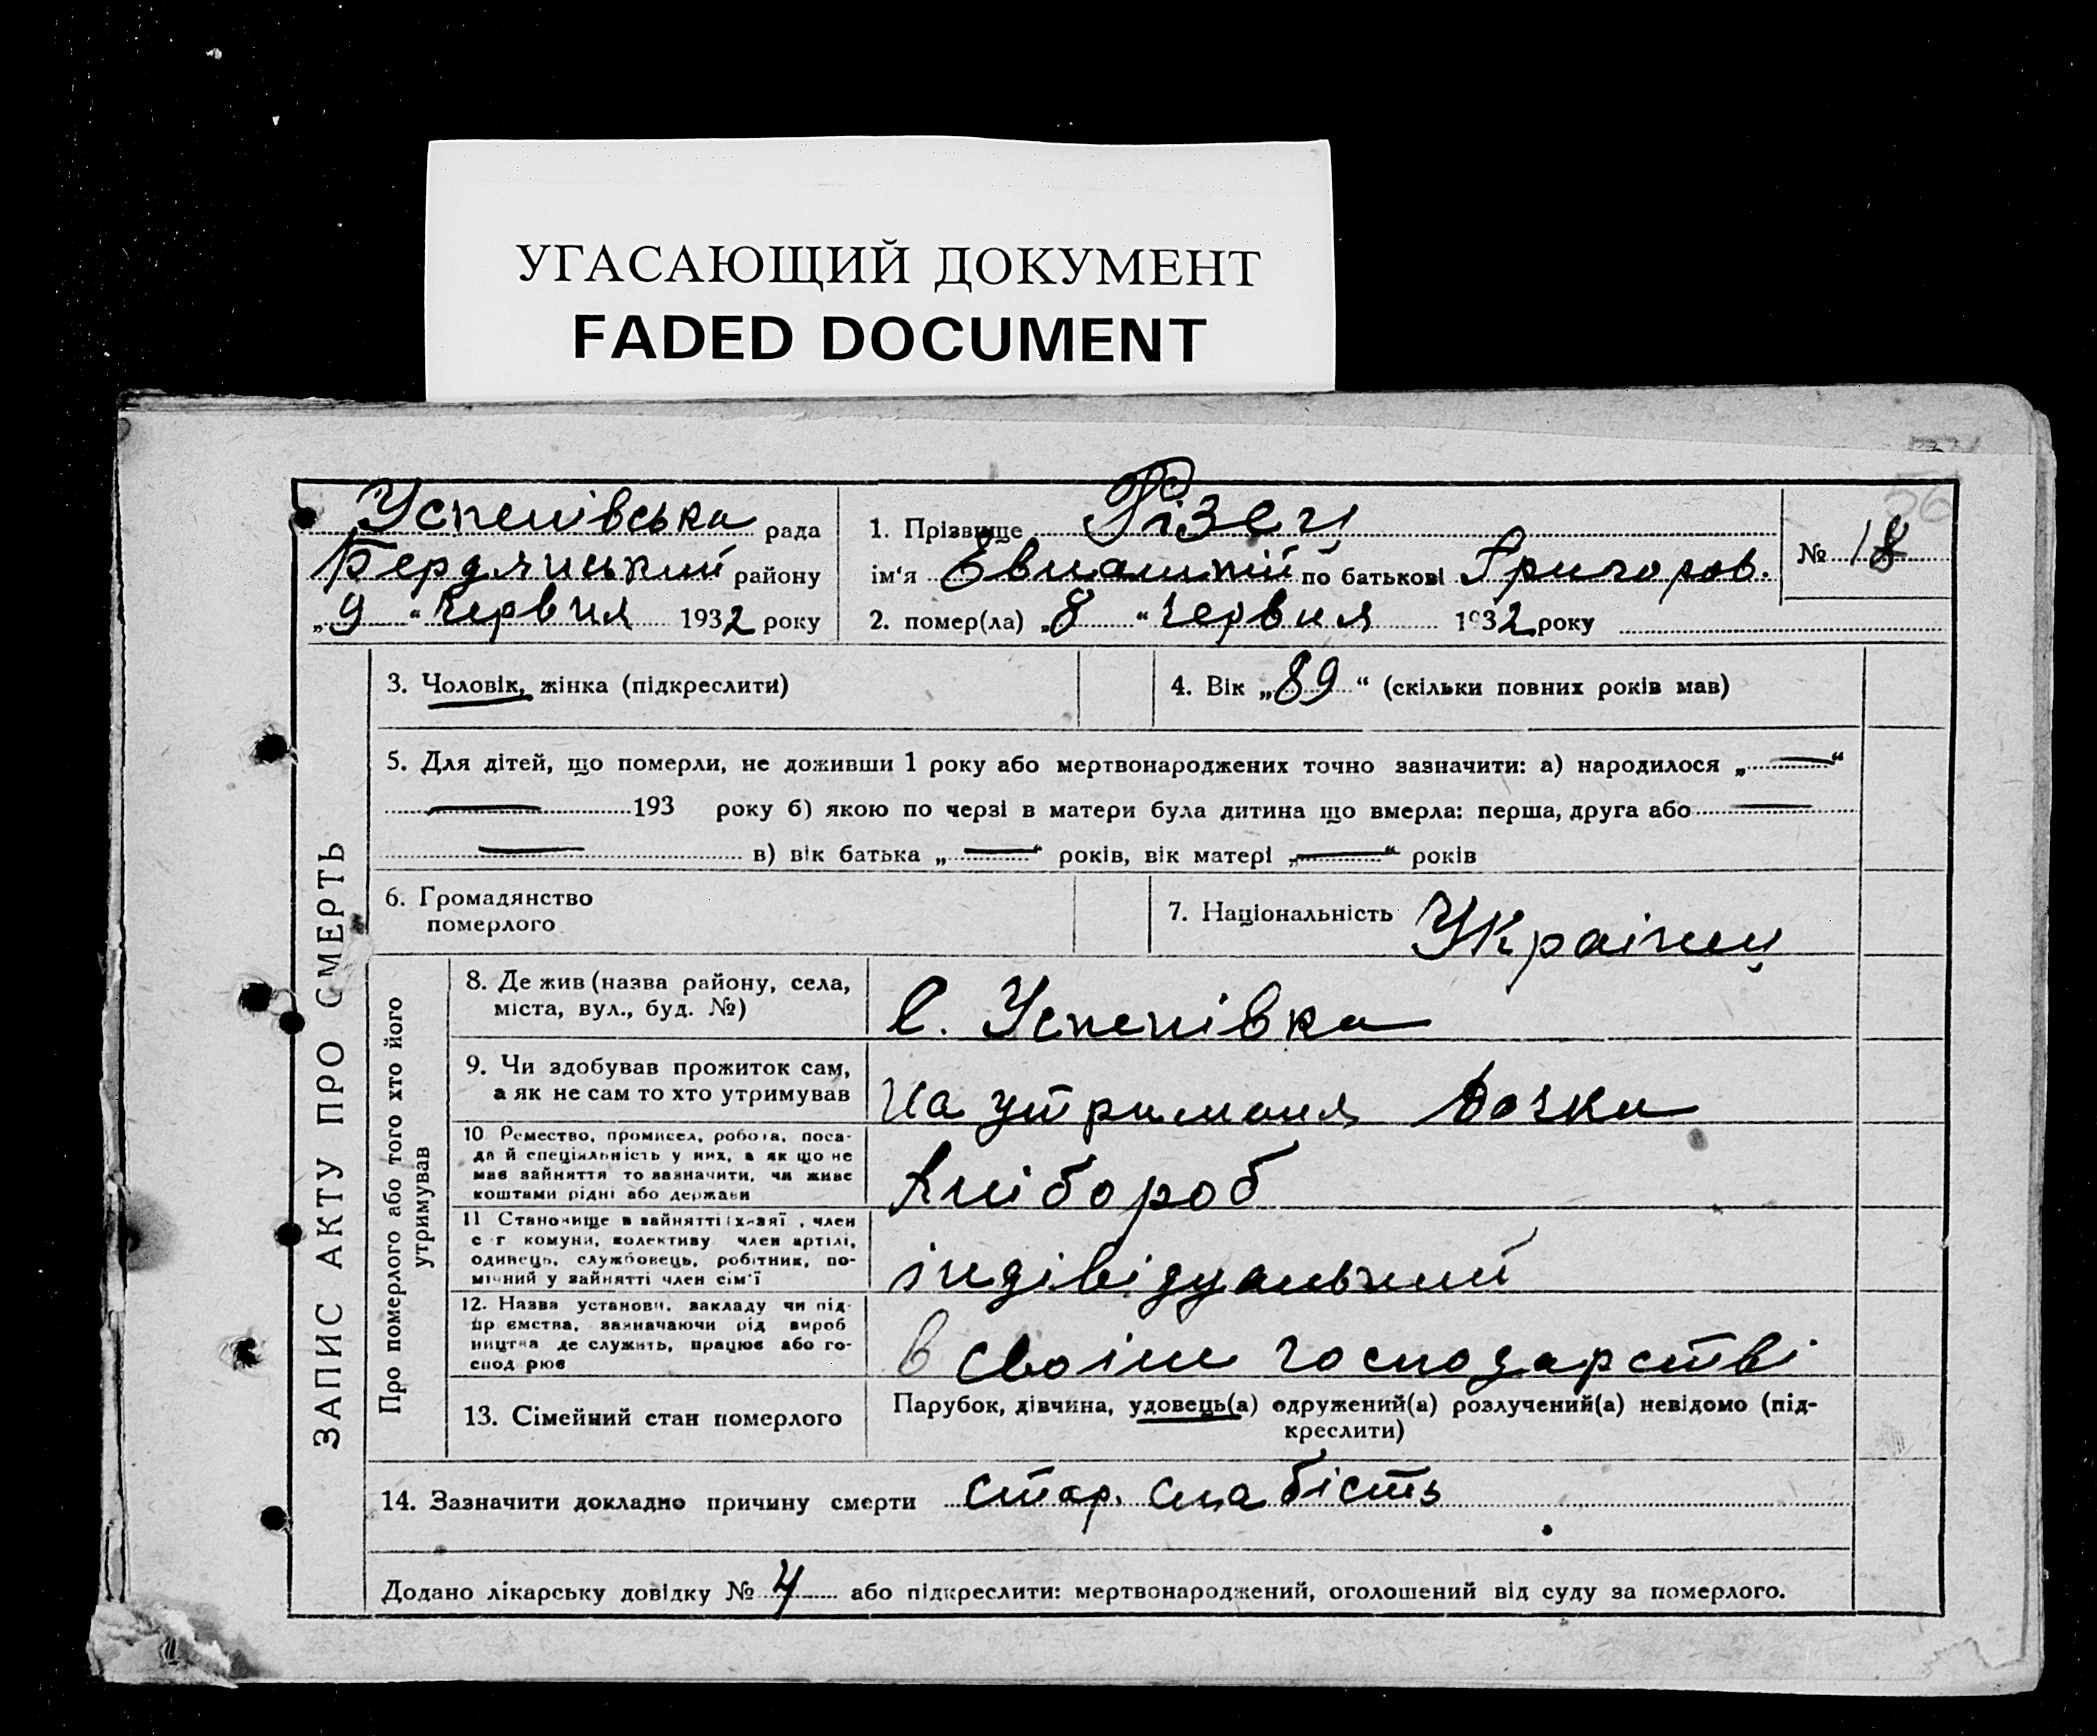 УГАСАЮЩИЙ ДОКУМЕНТ
FADED DOCUMENT
56
Успенівська рада
Бердянський району
„9“ червня 1932 року
1. Прізвище Різен
ім‘я по батькові Григоров.
2. помер(ла) „8“ червня 1932 року
№ 18
ЗАПИС АКТУ ПРО СМЕРТЬ
3. Чоловік, жінка (підкреслити)
4. Вік „89“ (скільки повних років мав)
5. Для дітей, що померли, не доживши 1 року або мертвонароджених точно зазначити: а) народилося „—“
— 193 року б) якою по черзі в матери була дитина що вмерла: перша, друга або —
— в) вік батька „—“ років, вік матері „—“ років
6. Громадянство
померлого
7. Національність Украінец
Про померлого або того хто його
утримував
8. Де жив (назва району, села,
міста, вул., буд. №)
с. Успенівка
9. Чи здобував прожиток сам,
а як не сам то хто утримував
на утриманя дочки
10 Ремество, промисел, робота, поса-
да й спеціяльність у них, а як що не
має зайняття то зазначити, чи живе
коштами рідні або держави
Хлібороб
11 Становище в зайнятті: хазяї, член
с-г комуни, колективу член артілі,
одинець, службовець, робітник, по-
мічний у зайнятті член сім‘ї
індівідуальний
12. Назва установи, закладу чи під-
приємства, зазначаючи рід вироб
ництва де служить, працює або го-
спод рює
в своім господарстві
13. Сімейний стан померлого
Парубок, дівчина, удовець(а) одружений(а) розлучений(а) невідомо (під-
креслити)
14. Зазначити докладно причину смерти стар. слабість
Додано лікарську довідку № 4 або підкреслити: мертвонароджений, оголошений від суду за померлого.